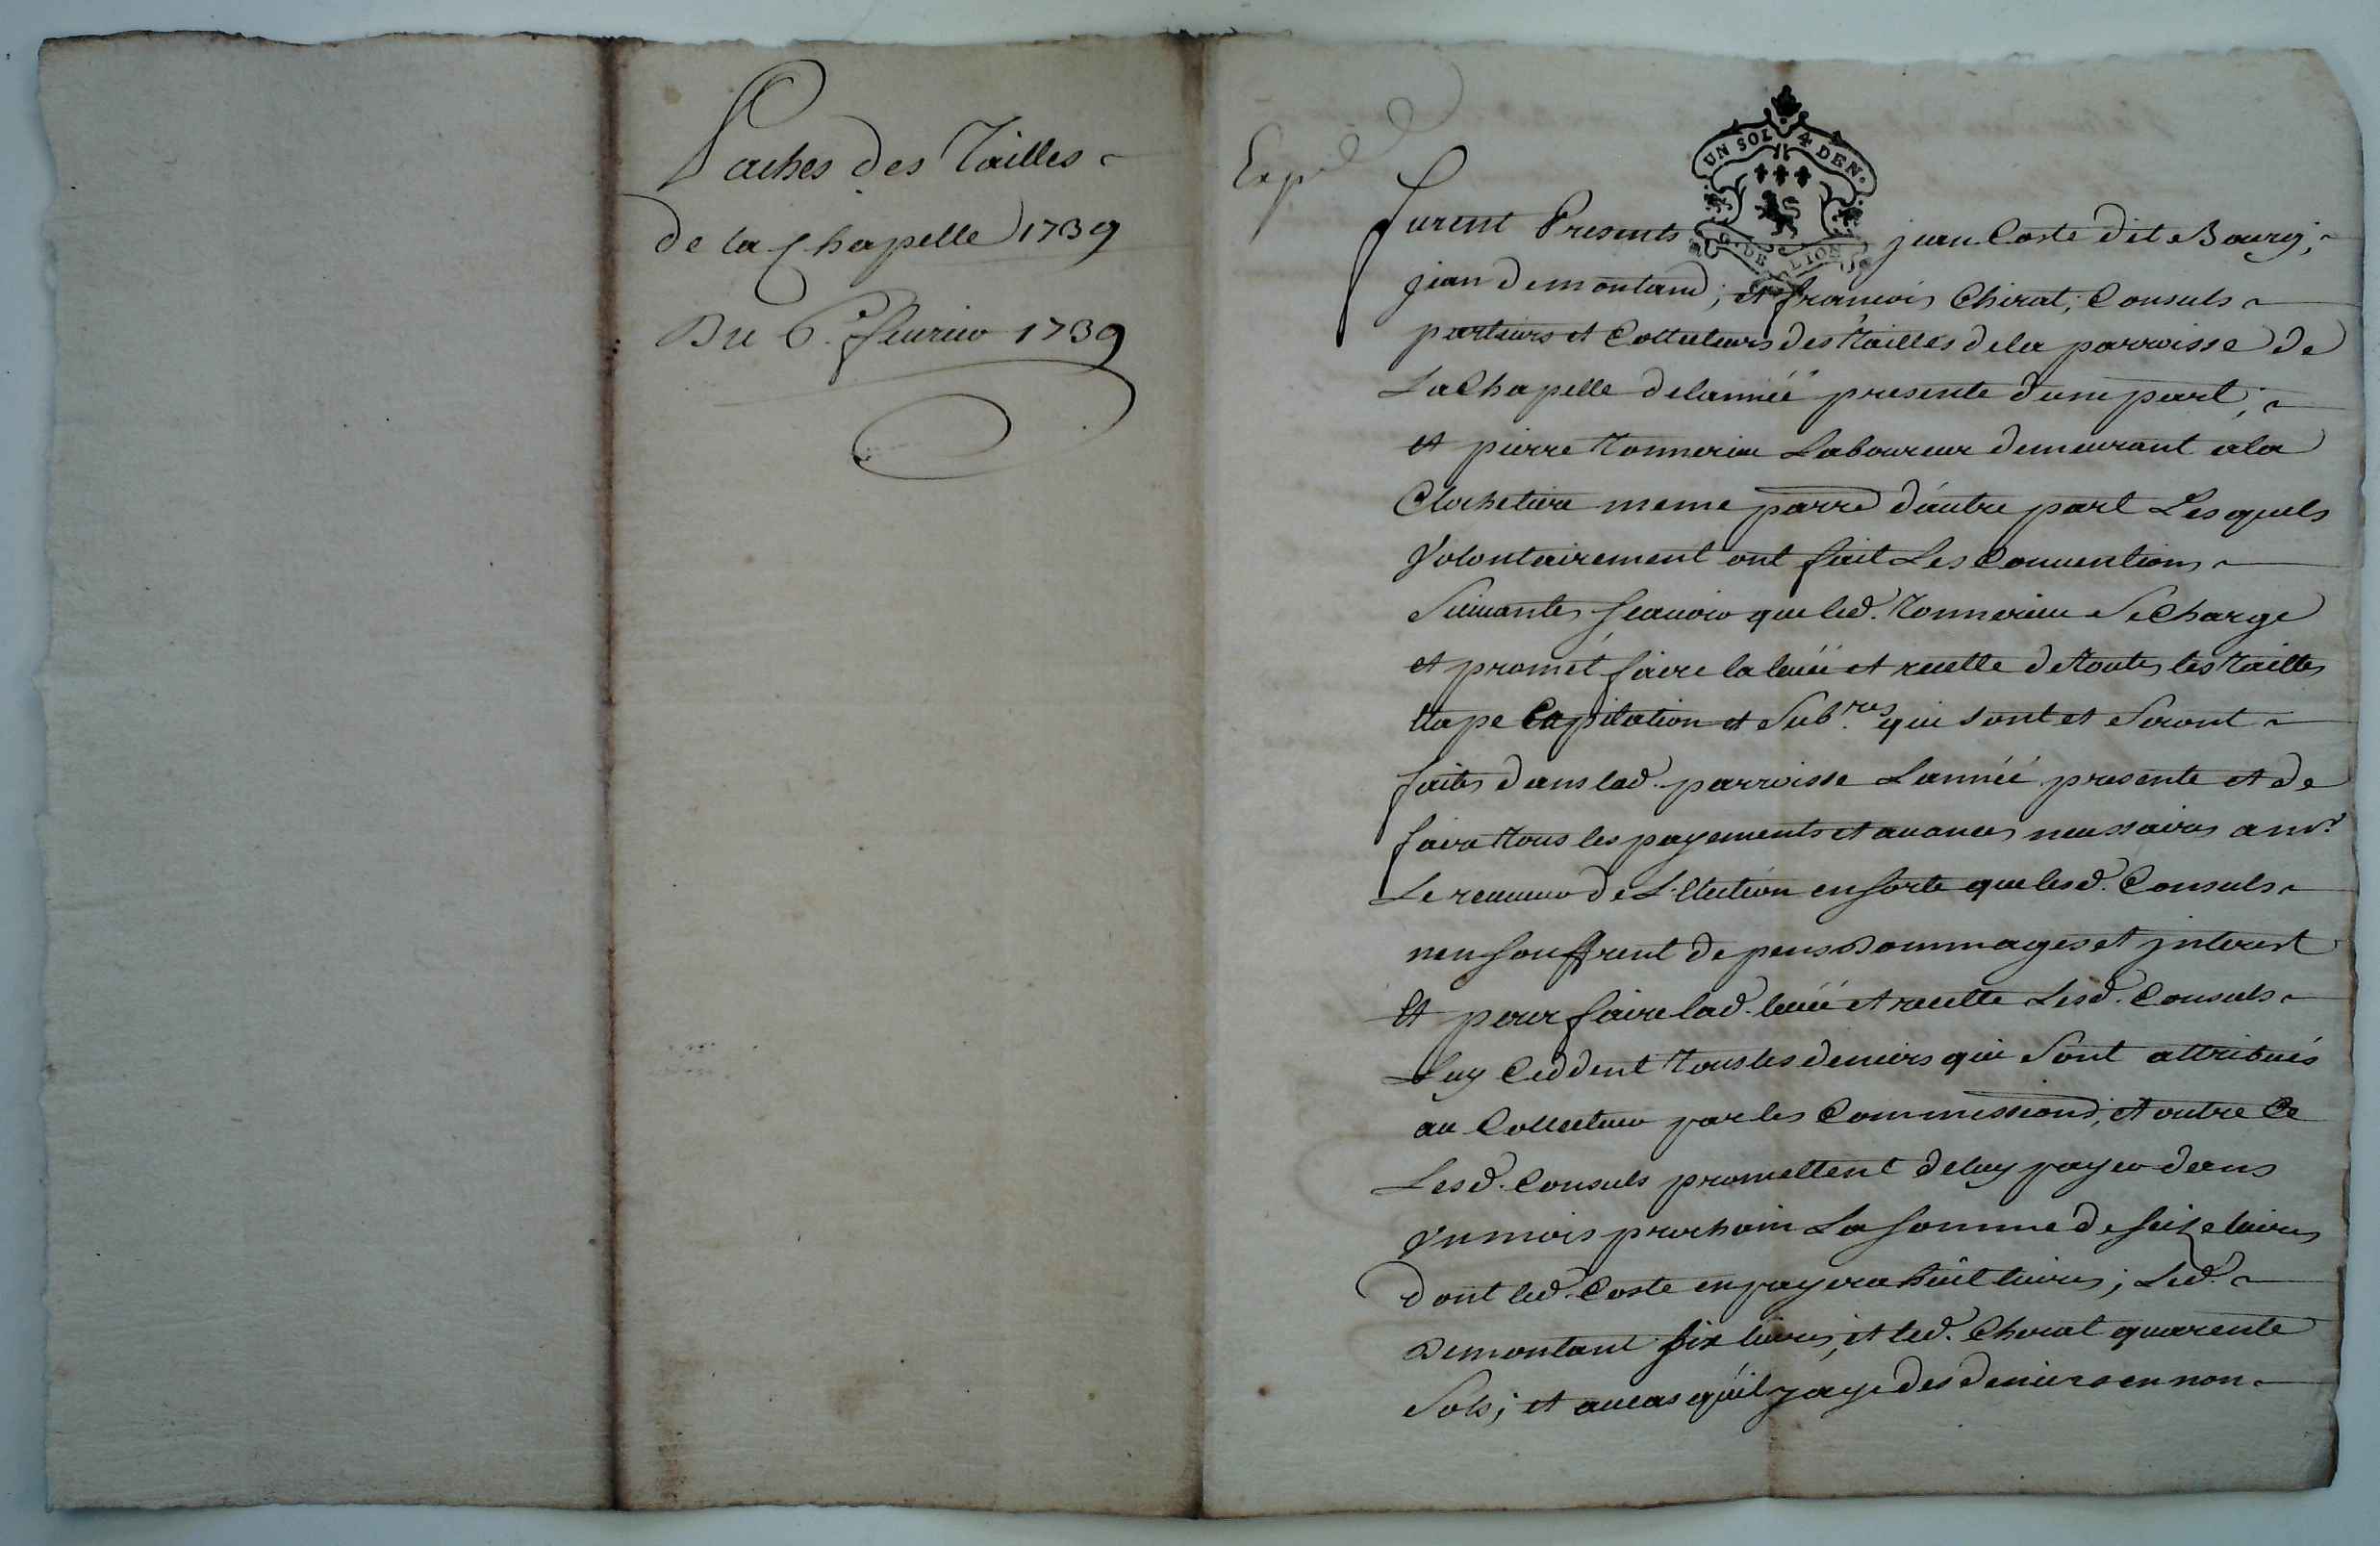 Paches des Tailles
de la Chapelle 1739
Du 6.e feurier 1739
Exp
UN SOL 4 DEN.
G. DE LION
furent Presents jean Coste dit Bourg,
jean demontand; et françois Chirat; Consuls
parteurs et Collecteurs des tailles dela parroisse de
La Chapelle delannéé presente d'une part;
et pierre tonnerieu Laboureur demeurant ala
Clochetiere meme parre d'autre part Lesquels
Volontairement ont fait Les Conuentions
Suiuantes scauoir que led. tonnerieu Se Charge
et promet faire la leuéé et recette de toutes les tailles
Capitation et Subres qui sont et Seront
faites dans lad. parroisse Lannéé presente et de
faire tous les payements et auances necessaires a mr
Le receueur de L'Election en sorte que lesd. Consuls
nen souffrent depens dommages et jnterest
Et pour faire lad. leuéé et recette Lesd. Consuls
Luy Ceddent tous les deniers qui Sont attribués
au Collecteur par les Commissions; et outre Ce
Lesd. Consuls promettent de luy payer dans
Vn mois prochain La somme de seize liures
dont led. Coste en payera huit liures; Led.
Demontant six liures, et led. Cherat quarente
Sols; et aucas quil y aye des deniers en non